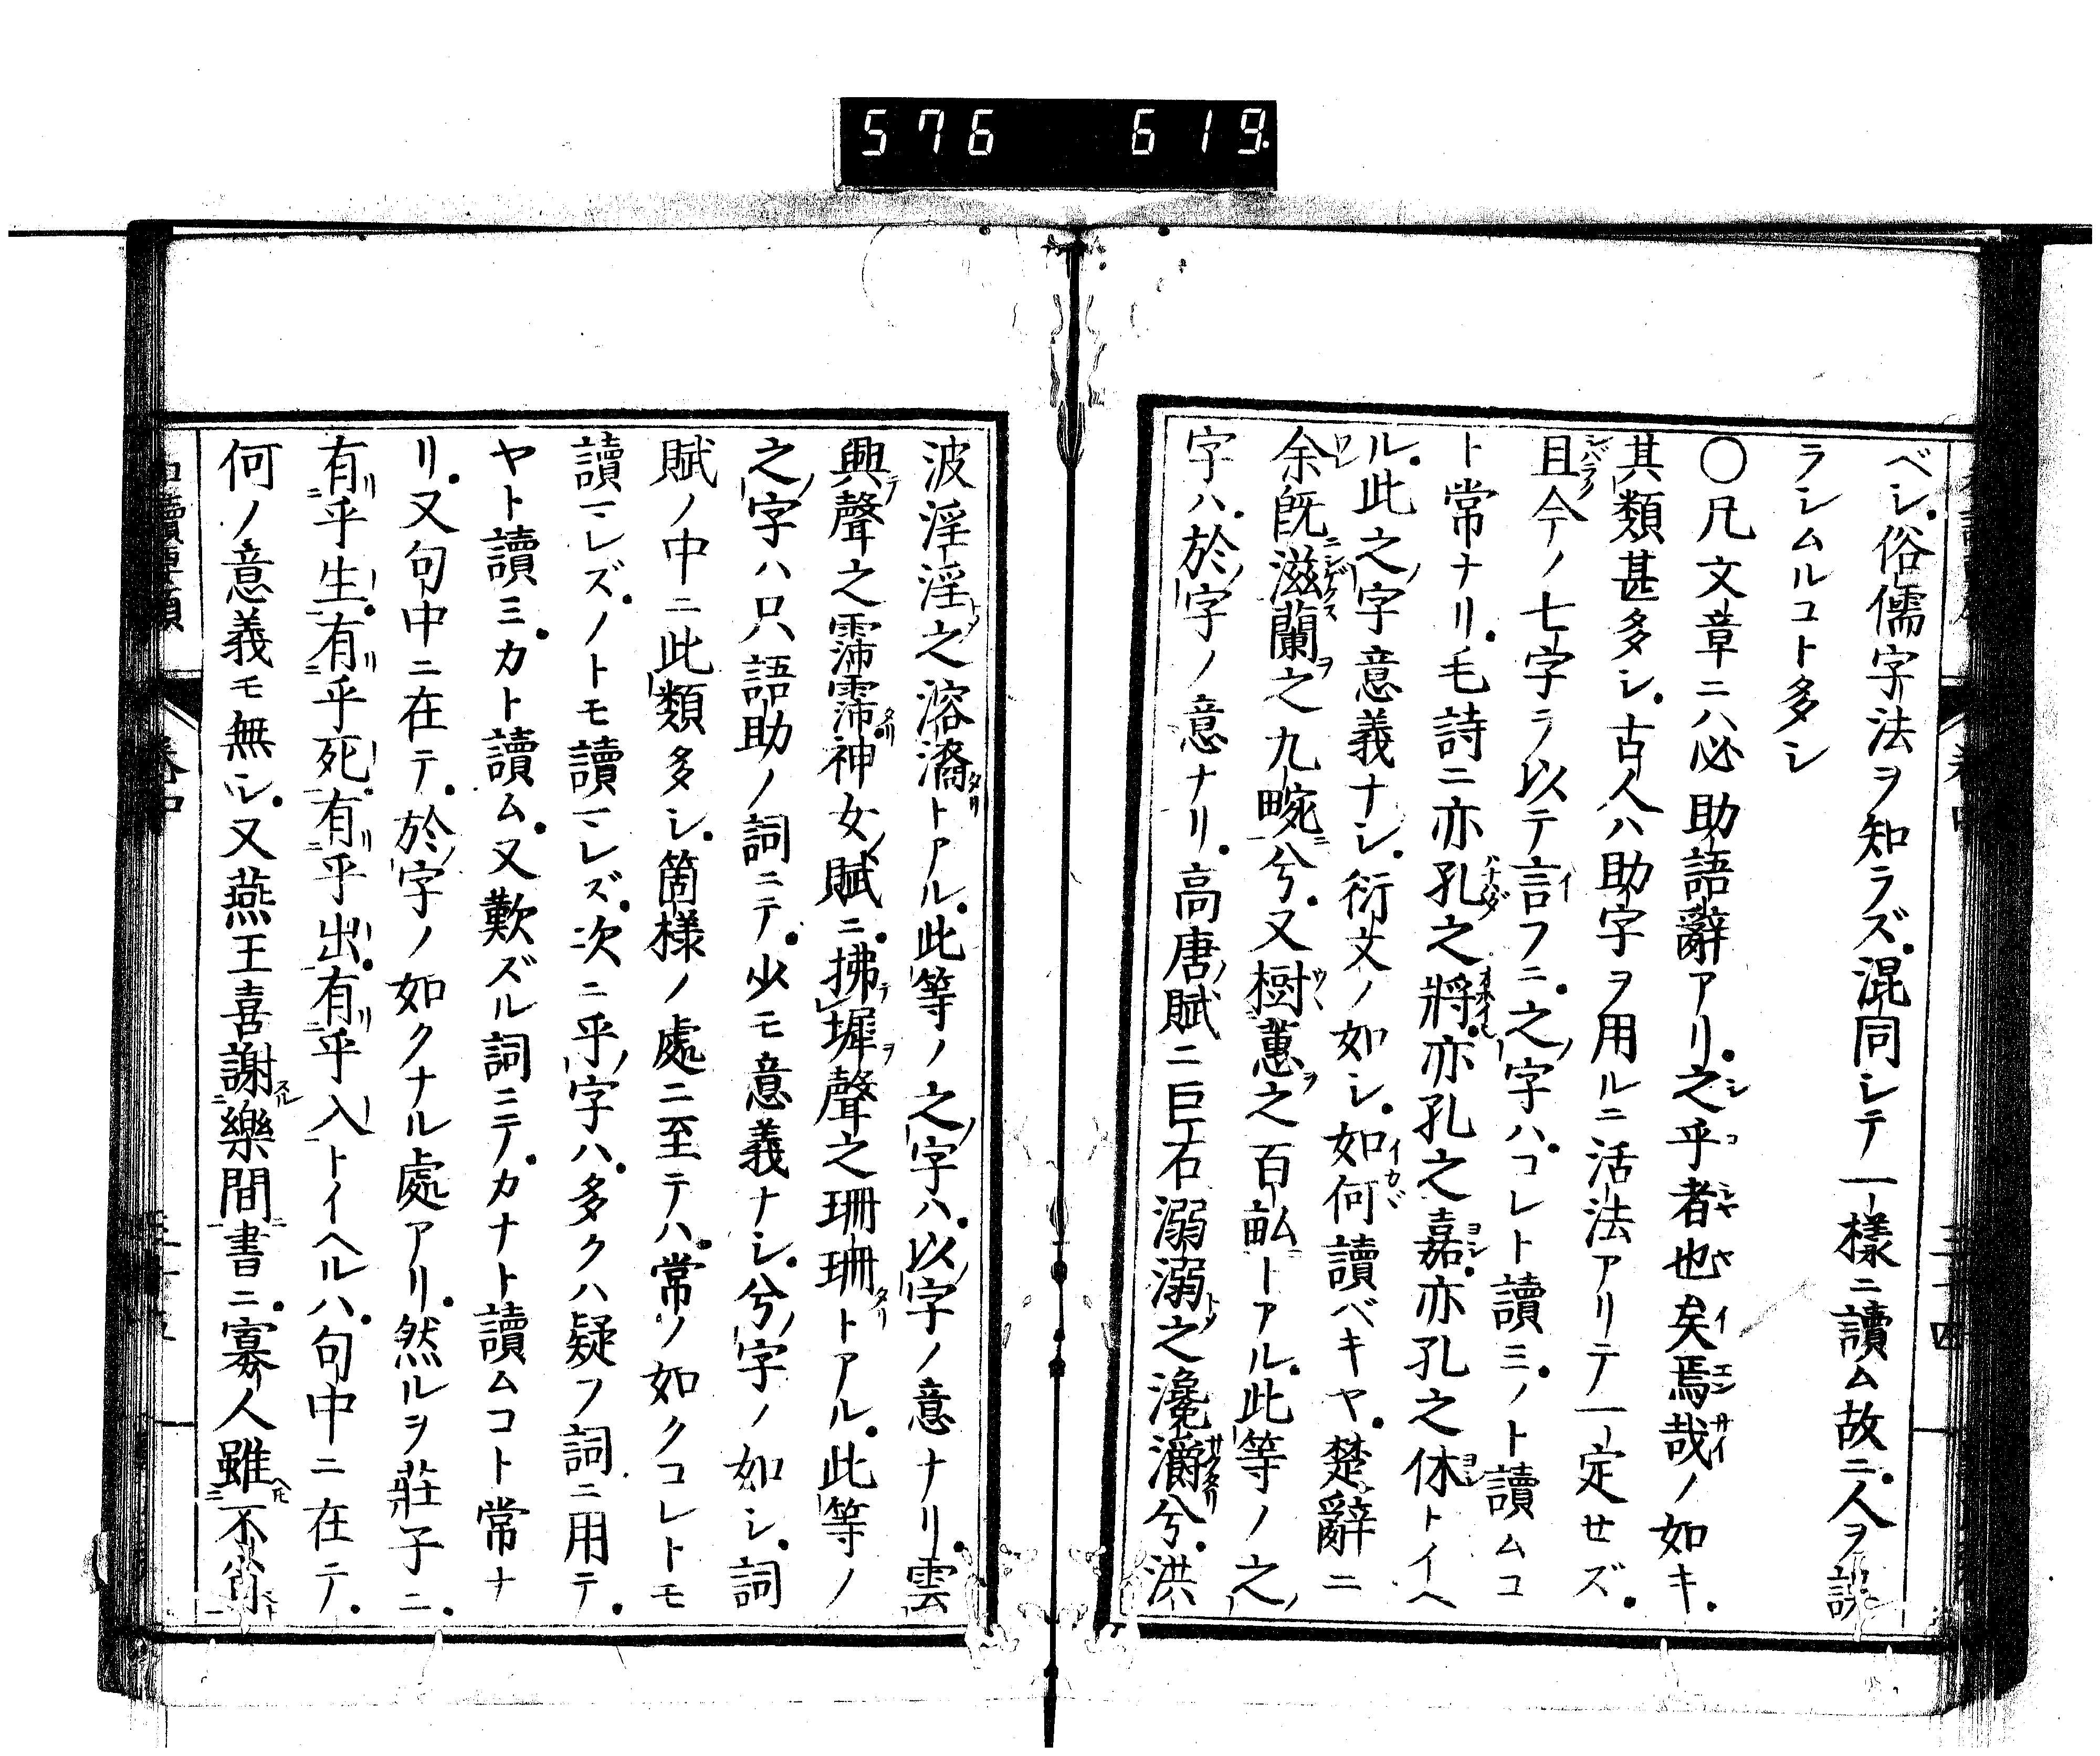 576 619.
ベシ。俗儒字法ヲ知ラズ。混同シテ一樣ニ讀ム故ニ。人ヲ誤
ラシムルコト多シ
〇凡文章ニハ必助語辭アリ。之乎者也矣焉哉ノ如キ。
其類甚多シ。古人ハ助字ヲ用ルニ活法アリテ一定セズ。
且今ノ七字ラ以テ言フニ。之字ハ。コレト讀ミ。ノト讀ムコ
ト常ナリ。毛詩ニ亦孔之將。亦孔之嘉。亦孔之休トイヘ
ル。此之字意義ナシ。衍文ノ如シ。如何讀ベキヤ。楚辭ニ
余既滋蘭之九畹兮。又樹蕙之百畝トアル。此等ノ之
字ハ。於字ノ意ナリ。高唐賦ニ巨石溺溺之瀺灂兮。洪
波淫淫之溶㵝トアル。此等ノ之字ハ。以字ノ意ナリ。雲
興聲之霈霈。神女賦ニ。拂墀聲之珊珊トアル。此等ノ
之字ハ只語助ノ詞ニテ。少モ意義ナシ。兮字ノ如シ。詞
賦ノ中ニ此類多シ。箇樣ノ處ニ至テハ。常ノ如クコレトモ
讀マレズ。ノトモ讀マレズ。次ニ乎字ハ。多クハ疑フ詞ニ用テ。
ヤト讀ミ。カト讀ム。又歎ズル詞ニテ。カナト讀ムコト常ナ
リ。又句中ニ在テ。於字ノ如クナル處アリ。然ルヲ莊子ニ。
有乎生。有乎死。有乎出。有乎入トイヘルハ。句中ニ在テ。
何ノ意義モ無シ。又燕王喜謝樂間書ニ。寡人雖不肖
卷中